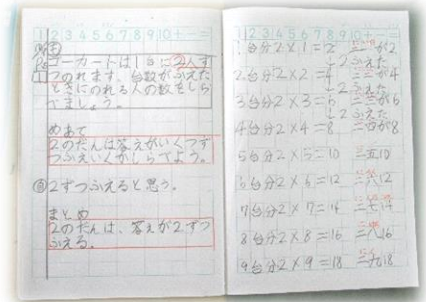 1 2 3 4 5 6 7 8 9 10 + - =
ゴーカートは1台に2人ず
つのれます。台数がふえた
ときにのれる人の数をしら
べましょう。
めあて
2のだんは答えがいくつず
つふえいくかしらべよう。
2ずつふえると思う。
まとめ
2のだんは、答えが2ずつ
ふえる。
1 2 3 4 5 6 7 8 9 10 + - =
1台分 2×1=2 二一が2
2ふえた
2台分 2×2=4 二二が4
2ふえた
3台分 2×3=6 二三が6
2ふえた
4台分 2×4=8 二四が8
5台分 2×5=10 二五10
6台分 2×6=12 二六12
7台分 2×7=14 二七14
8台分 2×8=16 二八16
9台分 2×9=18 二九18